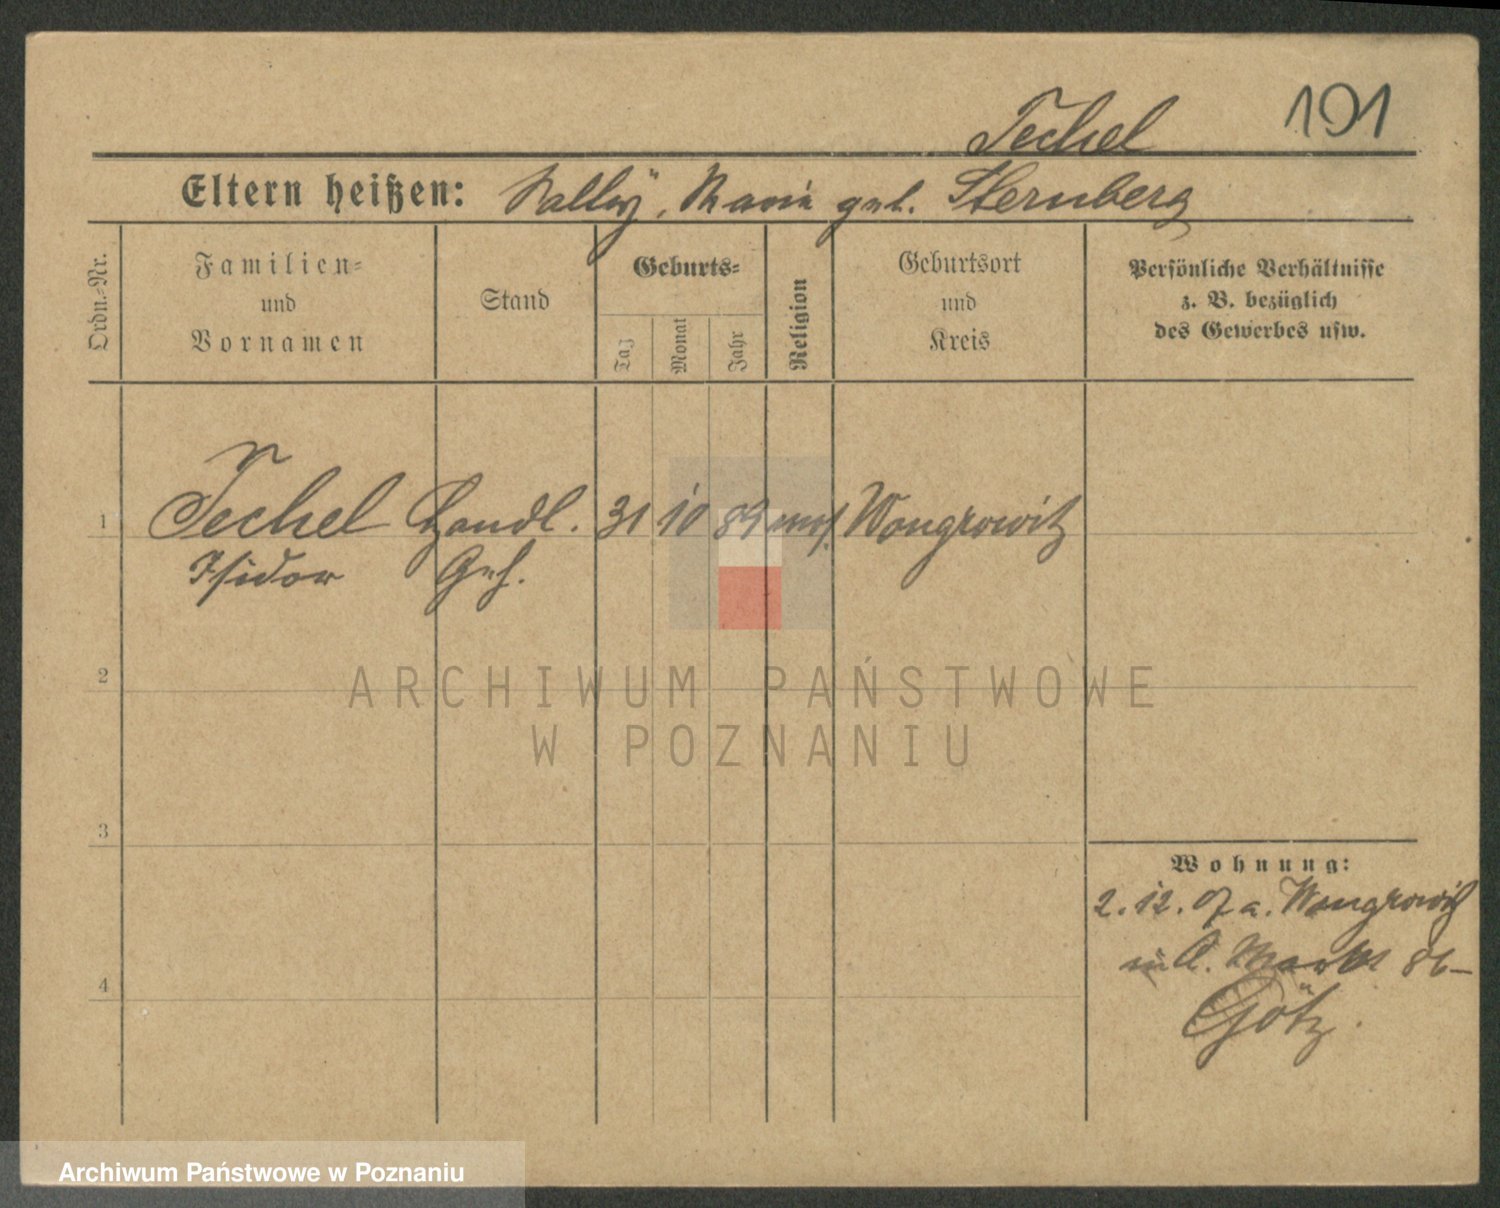 Techel 191
Eltern heißen: Sally, Marie geb. Sternberg
Ordn.-Nr.
Familien-
und
Vornamen
Stand
Geburts-
Tag
Monat
Jahr
Religion
Geburtsort
und
Kreis
Persönliche Verhältnisse
z. B. bezüglich
des Gewerbes usw.
1 Techel Handl. 31 10 89 mos. Wongrowitz
Isidor Geh.
2
ARCHIWUM PAŃSTWOWE
W POZNANIU
3
4
Wohnung:
2.12.07 a. Wongrowitz
in A. Markt 86
Götz.
Archiwum Państwowe w Poznaniu